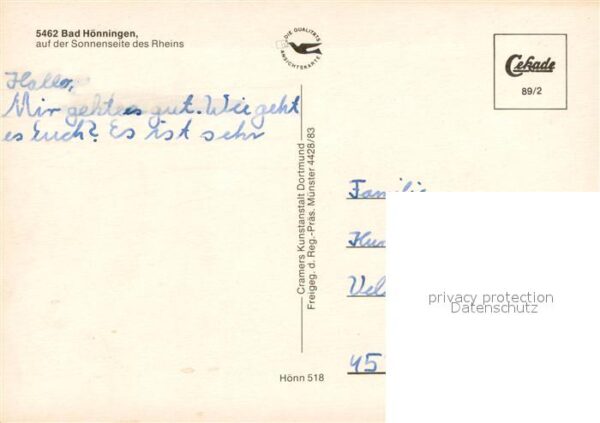 5462 Bad Hönningen,
auf der Sonnenseite des Rheins
DIE QUALITÄTS ANSICHTSKARTE
Cekade
89/2
Hallo,
Mir geht es gut. Wie geht
es Euch? Es ist sehr
Cramers Kunstanstalt Dortmund
Freigeg. d. Reg.-Präs. Münster 4428/83
Familie
45
privacy protection
Datenschutz
Hönn 518